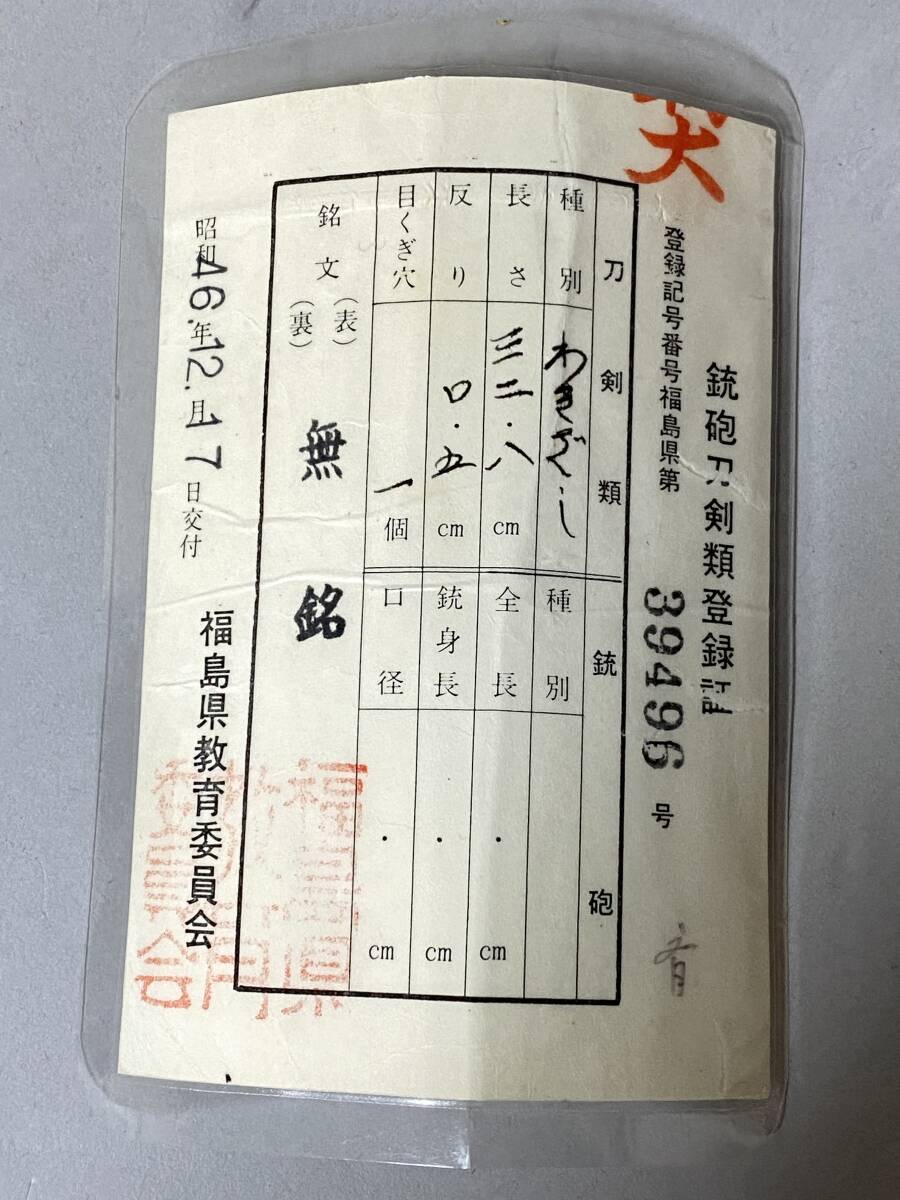 銃砲刀剣類登録証
登録記号番号福島県第 39496 号
刀剣類
種別 わきざし
長さ 三二・八 cm
反り 〇・五 cm
目くぎ穴 一 個
銃砲
種別
全長 ・ cm
銃身長 ・ cm
口径 ・ cm
銘文 (表) (裏) 無銘
昭和46年12月17日交付
福島県教育委員会
福島県教育委員会